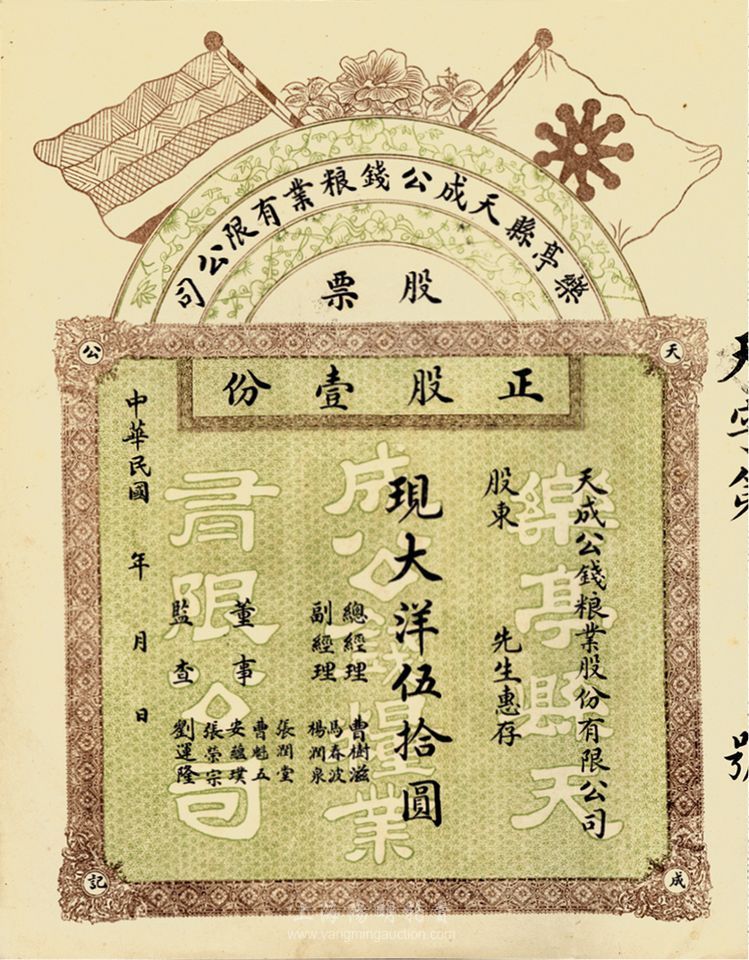 樂亭縣天成公錢粮業有限公司
股票
正股壹份
天
成
公
記
天成公錢粮業股份有限公司
股東 先生惠存
現大洋伍拾圓
總經理 曹樹滋
副經理 馬春波
楊潤泉
董事 張潤堂
曹魁五
安蘊璞
張榮宗
監查 劉運隆
中華民國 年 月 日
樂亭縣天
成公錢粮業
有限公司
號
上海陽明拍賣
www.yangmingauction.com